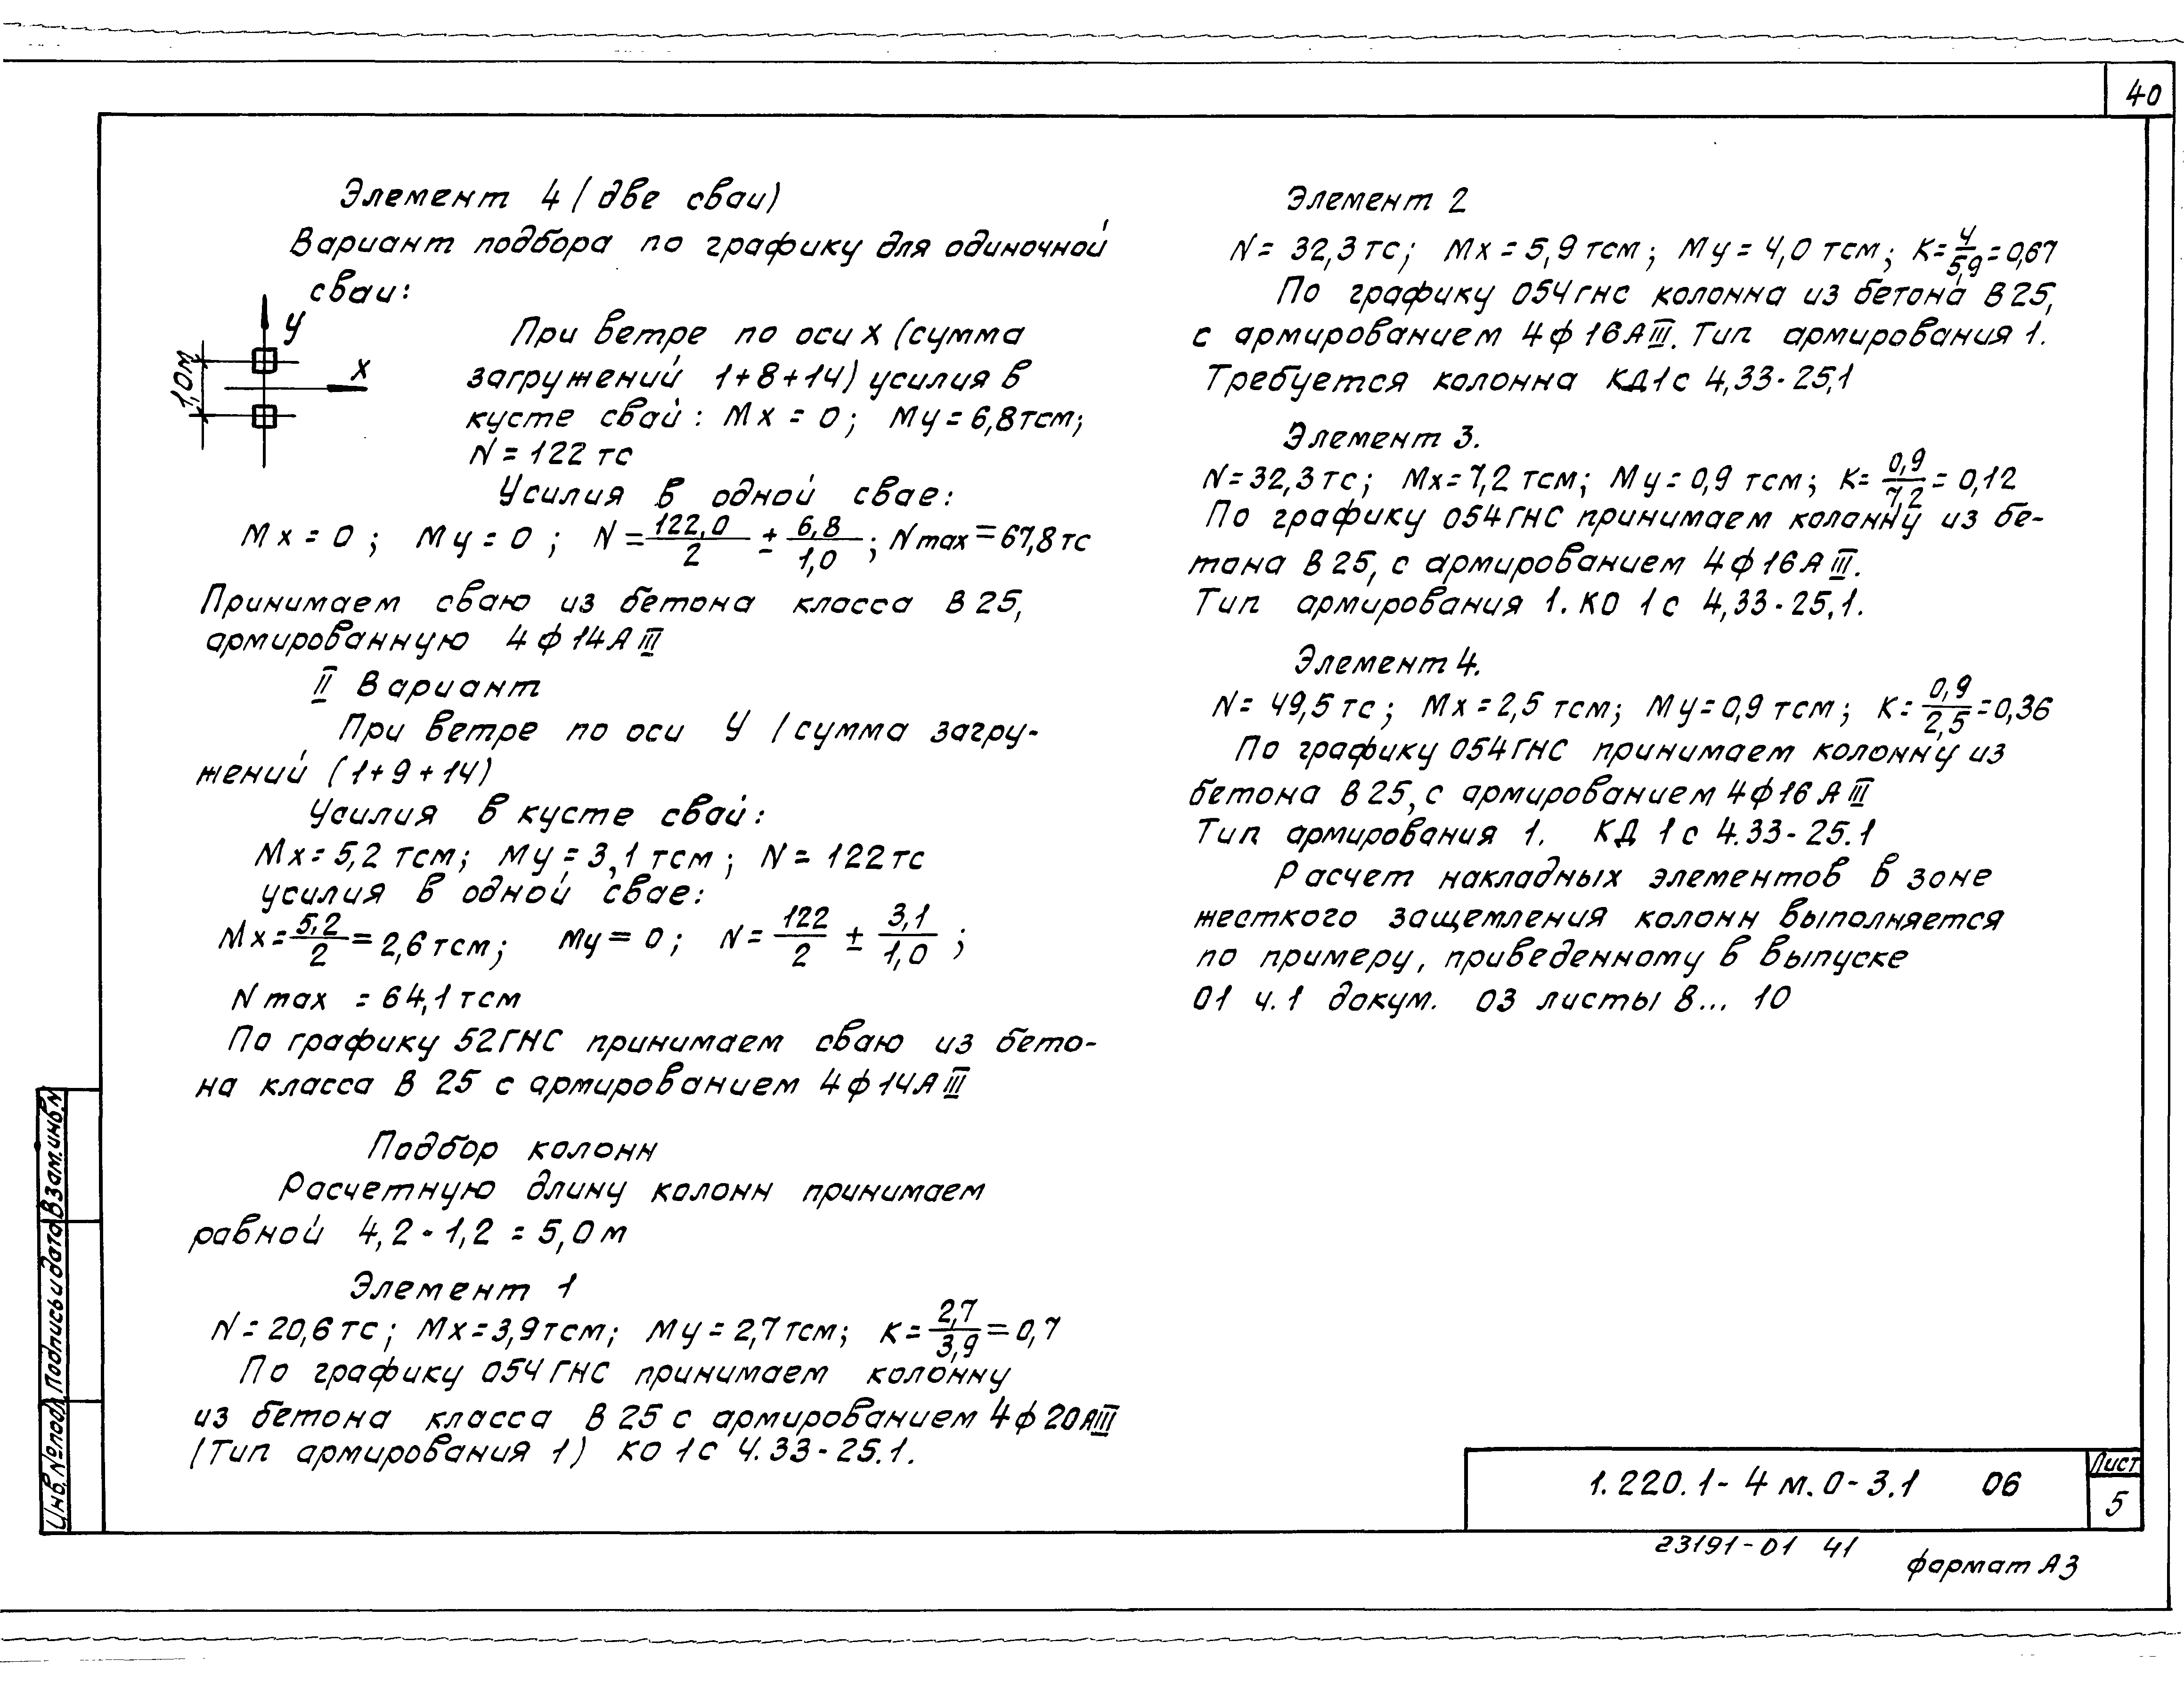 40
Элемент 4 (две сваи)
Вариант подбора по графику для одиночной
сваи:
У
Х
1,10м
При ветре по оси Х (сумма
загружений 1+8+14) усилия в
кусте свай: Мх = 0; Му = 6,8тсм;
N = 122 тс
Усилия в одной свае:
Мх = 0; Му = 0; N = 122,0/2 ± 6,8/1,0; Nmax = 67,8 тс
Принимаем сваю из бетона класса В25,
армированную 4ф14АIII
II Вариант
При ветре по оси У (сумма загру-
жений (1+9+14)
Усилия в кусте свай:
Мх = 5,2 тсм; Му = 3,1 тсм; N = 122 тс
усилия в одной свае:
Мх = 5,2/2 = 2,6 тсм; Му = 0; N = 122/2 ± 3,1/1,0;
Nmax = 64,1 тсм
По графику 52ГНС принимаем сваю из бето-
на класса В 25 с армированием 4ф14АIII
Подбор колонн
Расчетную длину колонн принимаем
равной 4,2 · 1,2 = 5,0 м
Элемент 1
N = 20,6 тс; Мх = 3,9тсм; Му = 2,7тсм; К = 2,7/3,9 = 0,7
По графику 054ГНС принимаем колонну
из бетона класса В 25 с армированием 4ф20АIII
(Тип армирования 1) КО 1с 4.33-25.1.
Элемент 2
N = 32,3 тс; Мх = 5,9 тсм; Му = 4,0 тсм; К = 4/5,9 = 0,67
По графику 054ГНС колонна из бетона В 25,
с армированием 4ф16АIII. Тип армирования 1.
Требуется колонна КД1с 4,33-25,1
Элемент 3.
N = 32,3 тс; Мх = 7,2 тсм; Му = 0,9 тсм; К = 0,9/7,2 = 0,12
По графику 054ГНС принимаем колонну из бе-
тона В 25, с армированием 4ф16АIII.
Тип армирования 1. КО 1с 4,33-25,1.
Элемент 4.
N = 49,5 тс; Мх = 2,5 тсм; Му = 0,9 тсм; К = 0,9/2,5 = 0,36
По графику 054ГНС принимаем колонну из
бетона В 25, с армированием 4ф16АIII
Тип армирования 1. КД 1с 4.33-25.1
Расчет накладных элементов в зоне
жесткого защемления колонн выполняется
по примеру, приведенному в выпуске
01 ч.1 докум. 03 листы 8... 10
Взам.инв.N
Подпись и дата
Инв.№подл.
1.220.1-4 м.0-3.1 06
Лист
5
23191-01 41
формат А3